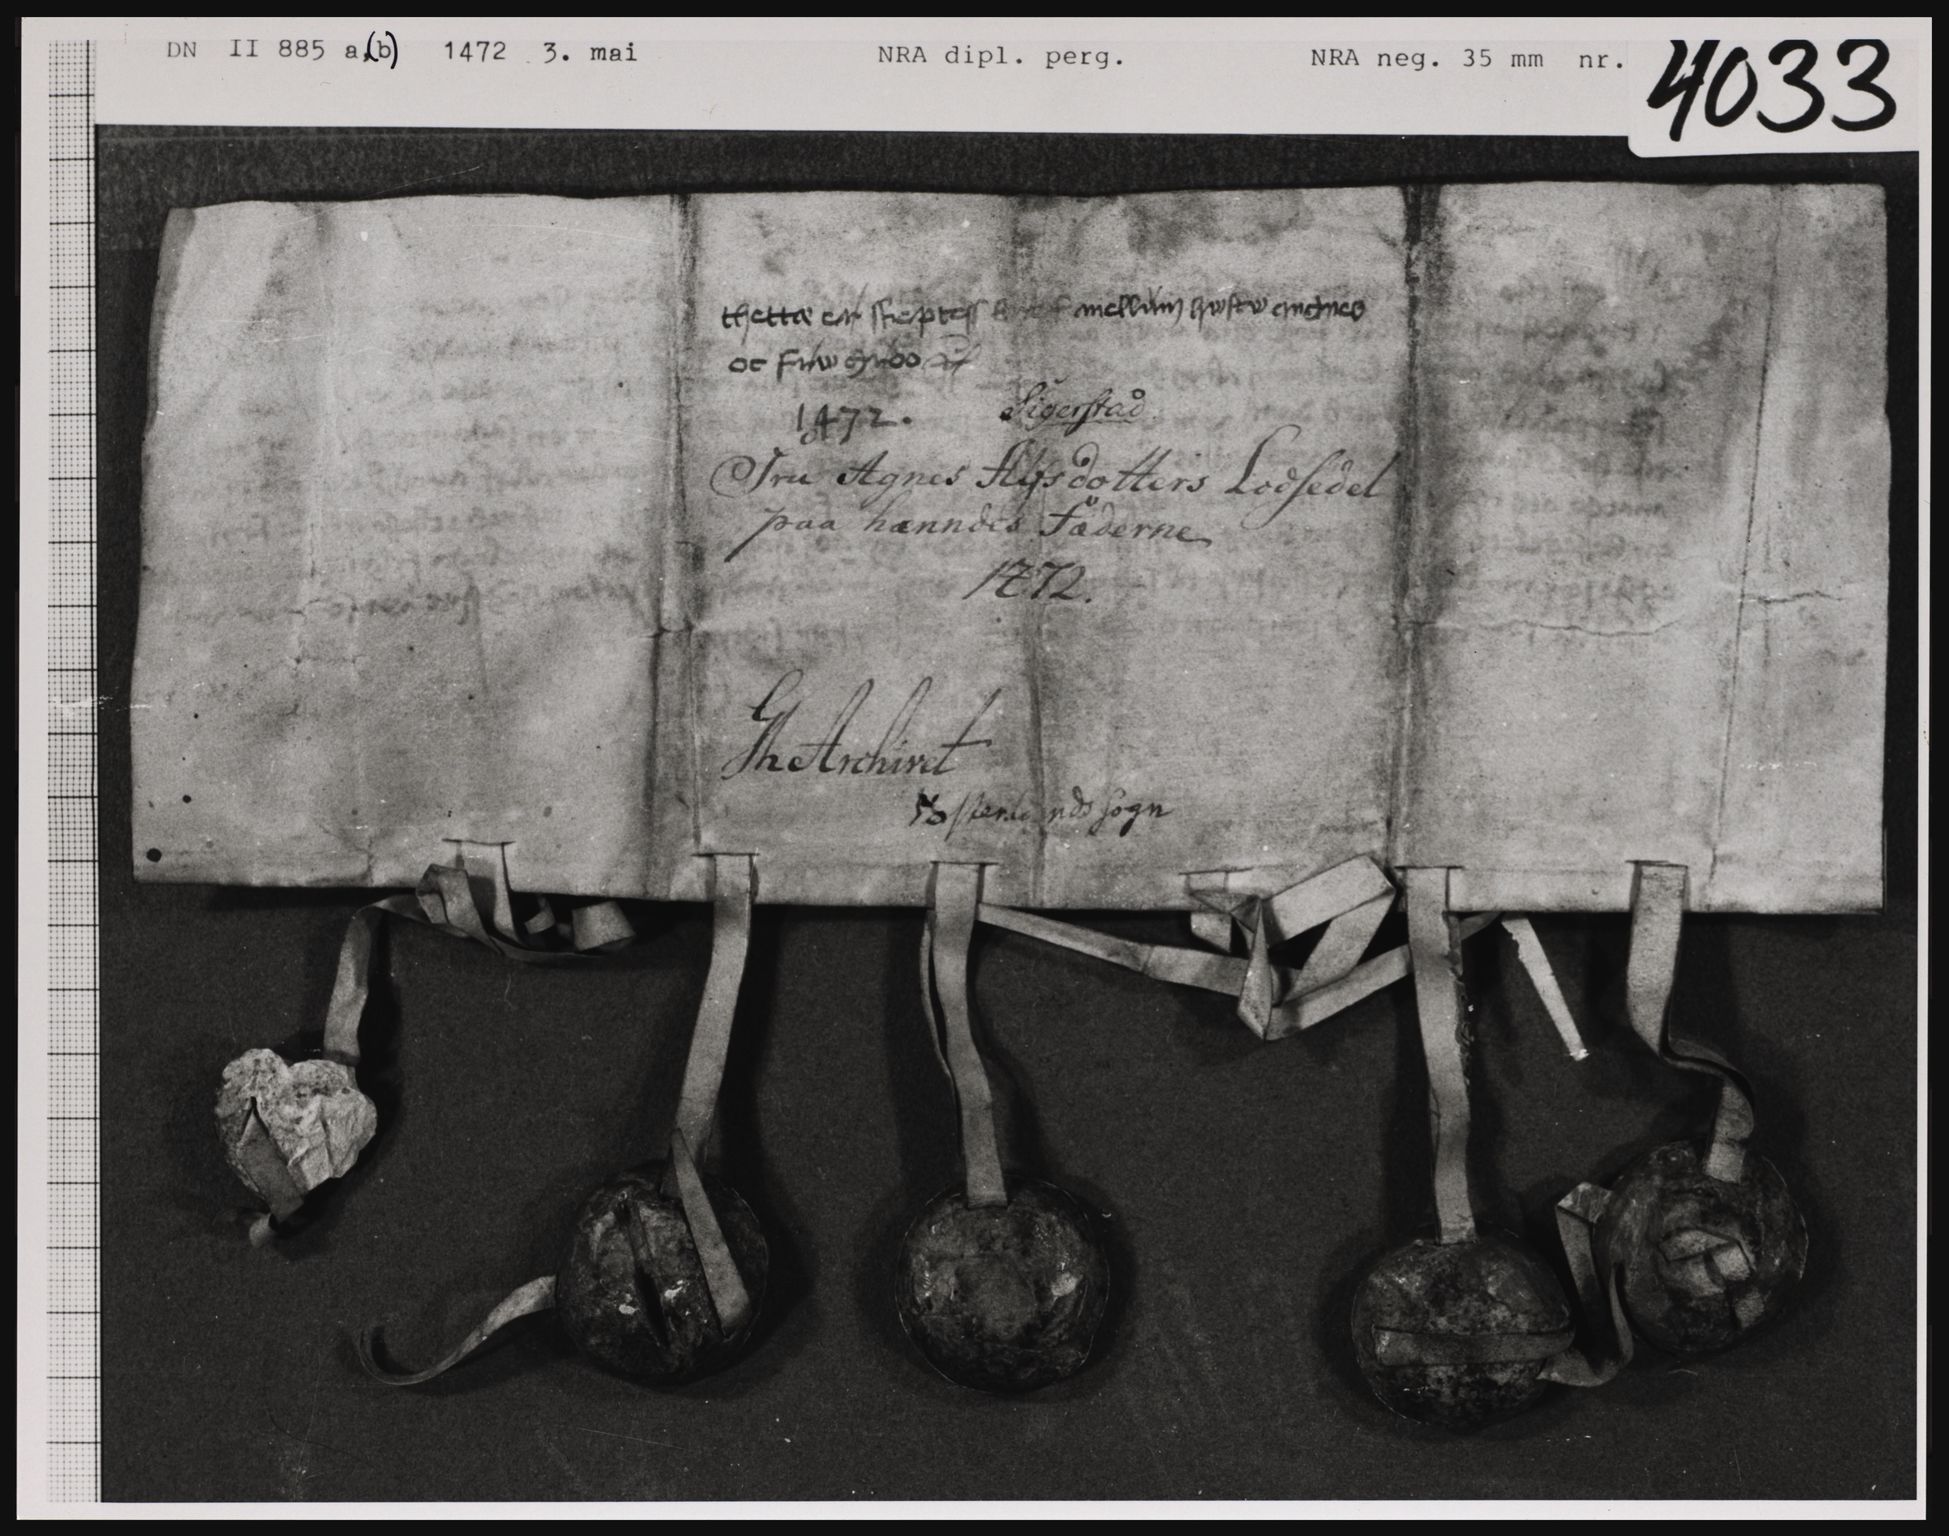 DN II 885 a(b) 1472 3. mai NRA dipl. perg. NRA neg. 35 mm nr. 4033
thettæ er skeptess breef mellwm hwstrw angnes
oc frw groo
1472. Sigerstad
Fru Agnes Alfsdotters Lodsedel
paa hænndes Fæderne
1472.
Gh Archivet
sogn